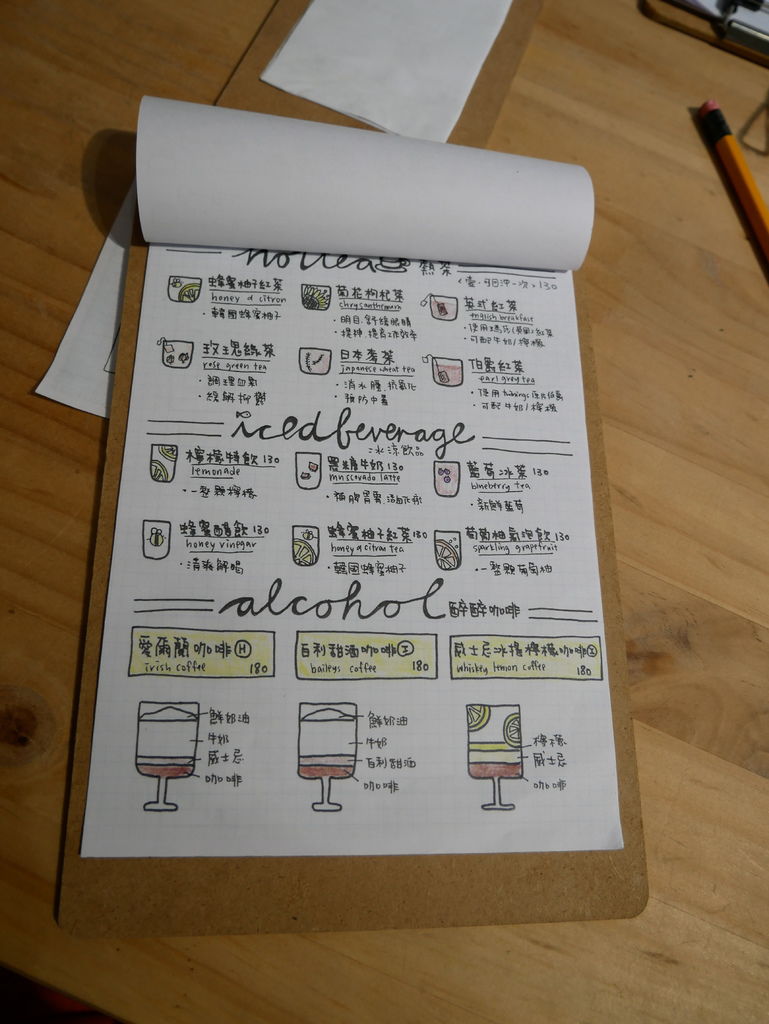 hot tea 熱茶
一壺.可回沖一次 130
蜂蜜柚子紅茶
honey & citron
・韓國蜂蜜柚子
菊花枸杞茶
chrysanthemum
・明目.舒緩眼睛
・提神.提高工作效率
英式紅茶
english breakfast
・可配牛奶/檸檬
玫瑰綠茶
rose green tea
・調理血氣
・緩解抑鬱
日本麥茶
japanese wheat tea
・消水腫.抗氧化
・預防中暑
伯爵紅茶
earl grey tea
・可配牛奶/檸檬
iced beverage
冰涼飲品
檸檬特飲 130
lemonade
・一整顆檸檬
黑糖牛奶 130
muscovado latte
藍莓冰茶 130
blueberry tea
・新鮮藍莓
蜂蜜醋飲 130
honey vinegar
・清爽解渴
蜂蜜柚子紅茶 130
honey & citron tea
・韓國蜂蜜柚子
葡萄柚氣泡飲 130
sparkling grapefruit
・一整顆葡萄柚
alcohol 醉醉咖啡
愛爾蘭咖啡 H
irish coffee 180
百利甜酒咖啡 I
baileys coffee 180
威士忌冰搖檸檬咖啡 I
whiskey lemon coffee 180
鮮奶油
牛奶
威士忌
咖啡
鮮奶油
牛奶
百利甜酒
咖啡
檸檬
威士忌
咖啡